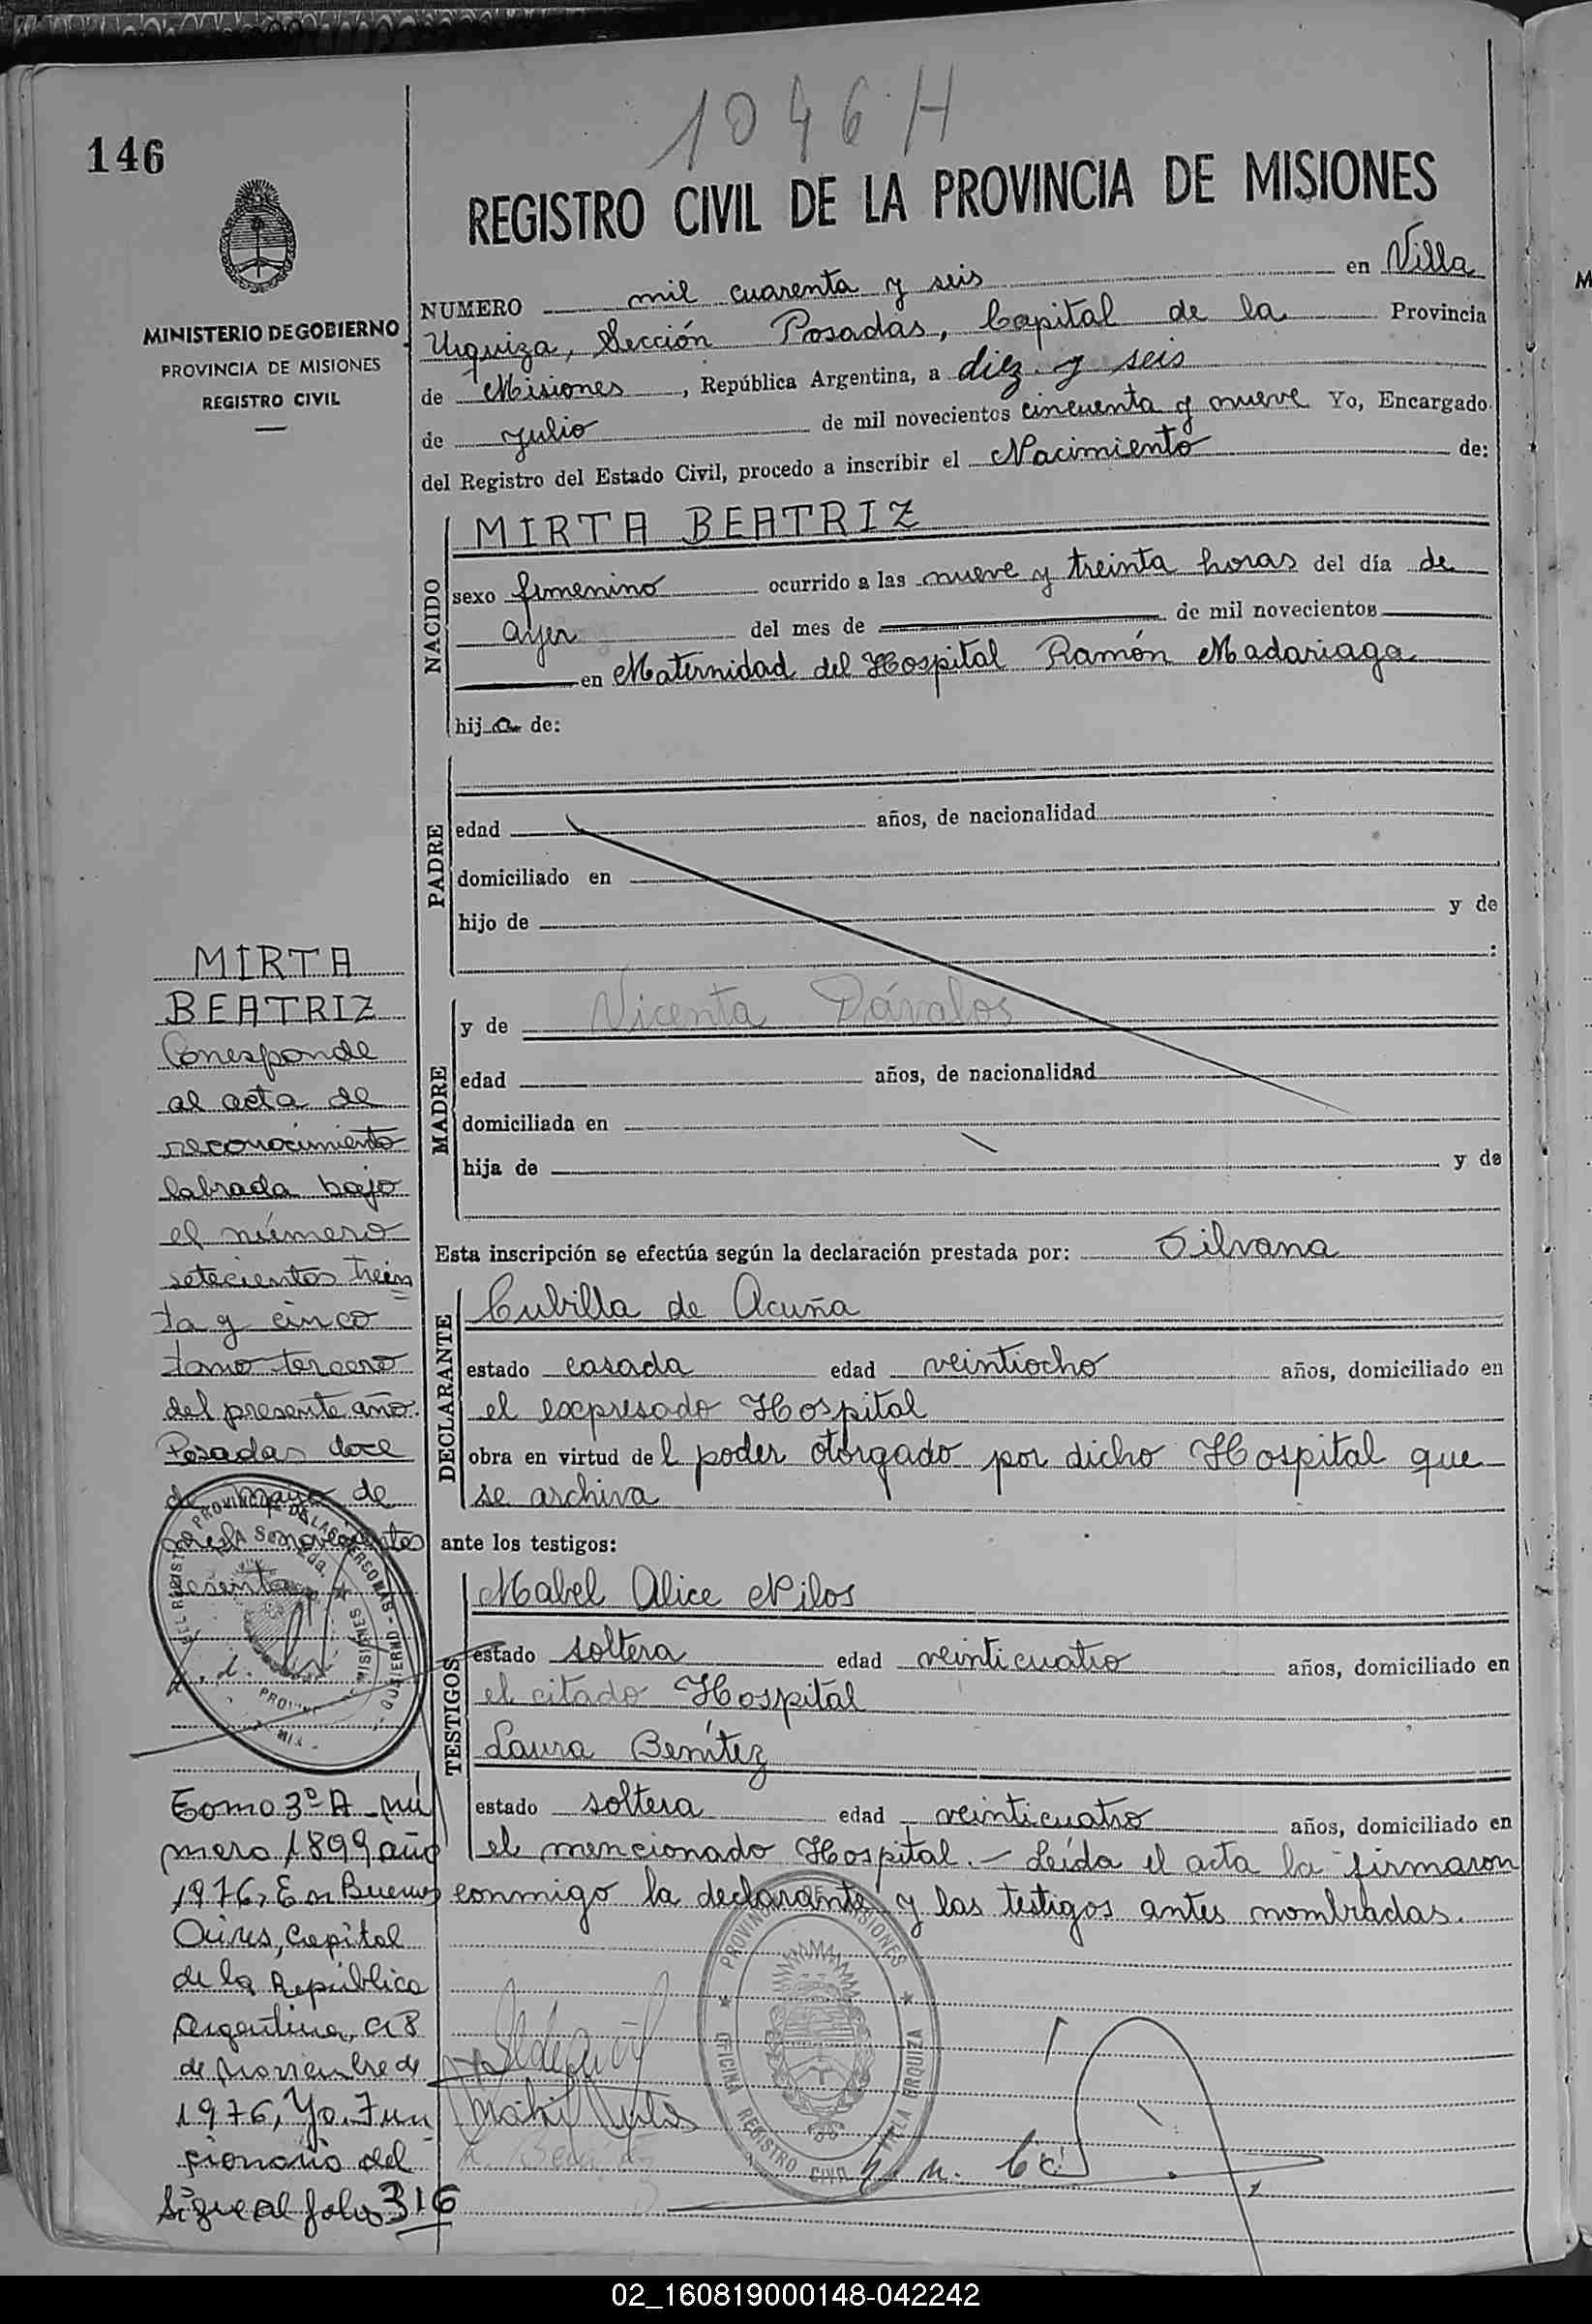 1046 H
146
REGISTRO CIVIL DE LA PROVINCIA DE MISIONES
MINISTERIO DE GOBIERNO
PROVINCIA DE MISIONES
REGISTRO CIVIL
NUMERO mil cuarenta y seis en Villa
Urquiza, Sección Posadas, Capital de la Provincia
de Misiones, República Argentina, a diez y seis
de Julio de mil novecientos cincuenta y nueve Yo, Encargado
del Registro del Estado Civil, procedo a inscribir el Nacimiento de:
NACIDO
MIRTA BEATRIZ
sexo femenino ocurrido a las nueve y treinta horas del día de
ayer del mes de de mil novecientos
en Maternidad del Hospital Ramón Madariaga
hija de:
PADRE
edad años, de nacionalidad
domiciliado en
hijo de y de
MADRE
y de Vicenta Dávalos
edad años, de nacionalidad
domiciliada en
hija de y de
Esta inscripción se efectúa según la declaración prestada por: Silvana
DECLARANTE
Cubilla de Acuña
estado casada edad veintiocho años, domiciliado en
el expresado Hospital
obra en virtud del poder otorgado por dicho Hospital que
se archiva
ante los testigos:
TESTIGOS
Mabel Alice Nilos
estado soltera edad veinticuatro años, domiciliado en
el citado Hospital
Laura Benítez
estado soltera edad veinticuatro años, domiciliado en
el mencionado Hospital.- Leída el acta la firmaron
conmigo la declarante y las testigos antes nombradas.
MIRTA
BEATRIZ
Corresponde
al acta de
reconocimiento
labrada bajo
el número
setecientos trein
ta y cinco
tomo tercero
del presente año.
Posadas doce
de mayo de
mil novecientos
sesenta
Tomo 3º A nú
mero 1899 año
1976, En Buenos
Aires, Capital
de la República
Argentina, a 8
de Noviembre de
1976, Yo, Fun
cionario del
Sigue al folio 316
PROVINCIA DE MISIONES
OFICINA REGISTRO CIVIL VILLA URQUIZA
02_160819000148-042242